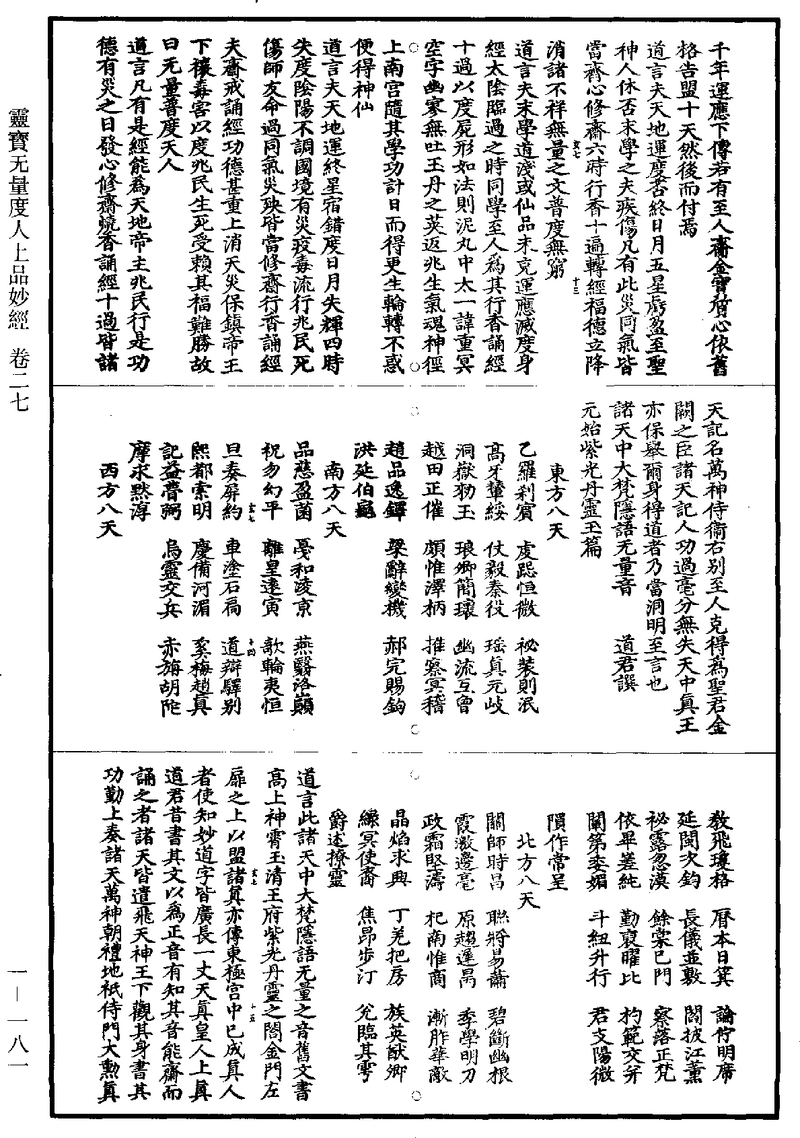 靈寶无量度人上品妙經 卷二七
一—一八一
千年運應下傳若有至人齎金寶質心依舊
格告盟十天然後而付焉
道言夫天地運度否終日月五星虧盈至聖
神人休否末學之夫疾傷凡有此災同氣皆
當齊心修齋六時行香十遍轉經福德立降
消諸不祥無量之文普度無窮
道言夫末學道淺或仙品未充運應滅度身
經太陰臨過之時同學至人為其行香誦經
十過以度屍形如法則泥丸中太一諱重冥
空字幽寥無吐王丹之英返兆生氣魂神徑
上南宮隨其學功計日而得更生輪轉不惑
便得神仙
道言夫天地運終星宿錯度日月失輝四時
失度陰陽不調國境有災疫毒流行兆民死
傷師友命過同氣災殃皆當修齋行香誦經
夫齋戒誦經功德甚重上消天災保鎮帝王
下禳毒害以度兆民生死受賴其福難勝故
曰无量普度天人
道言凡有是經能為天地帝主兆民行是功
德有災之日發心修齋燒香誦經十過皆諸
天記名萬神侍衛右别至人克得為聖君金
闕之臣諸天記人功過毫分無失天中真王
亦保舉爾身得道者乃當洞明至言也
諸天中大梵隱語无量音 道君譔
元始紫光丹靈玉篇
東方八天
乙羅刹賓 虔 恒微 袐裝則泯
高牙輦綏 仗毅秦役 瑶真元岐
洞嶽玉 琅卿簡瓌 幽流互曾
越田正催 頗惟澤柄 推察冥稽
趙品逸鐸 梁辭變機 郝完賜鈞
洪延伯
南方八天
品慈盈菌 戞和凌京 燕翳洛巔
祝勿幻平 離皇遠寅 歌輪夷恒
旦奏屏約 車塗石扃 道辯驛别
熙都索明 慶備河湄 奚梅趙真
記益薈弼 烏靈交兵 赤旃胡陀
摩求黙淳
西方八天
敎飛瓊格 曆本日箕 論佇明席
延閔次鈞 長儀並敷 閻披江薰
袐露忽漠 餘棠已門 察落正梵
依畢差純 勤裒曜比 杓範交并
闡第委媚 斗紐升行 君支陽微
隕作常呈
北方八天
關師時昌 聮將易蕭 碧斷幽根
霞邊毫 原趨運咼 季學明刀
政霜堅濤 杞南惟商 漸胙華敵
晶焰求興 丁羌把房 族英猷卿
纁冥使裔 焦昂步汀 兊臨其雩
爵述撩靈
道言此諸天中大梵隱語无量之音舊文書
高上神霄玉清王府紫光丹靈之閤金門左
扉之上以盟諸真亦傳東極宫中已成真人
者使知妙道字皆廣長一丈天真皇人上真
道君昔書其文以為正音有知其音能齋而
誦之者諸天皆遣飛天神王下觀其身書其
功勤上奏諸天萬神朝禮地祇侍門大勳真